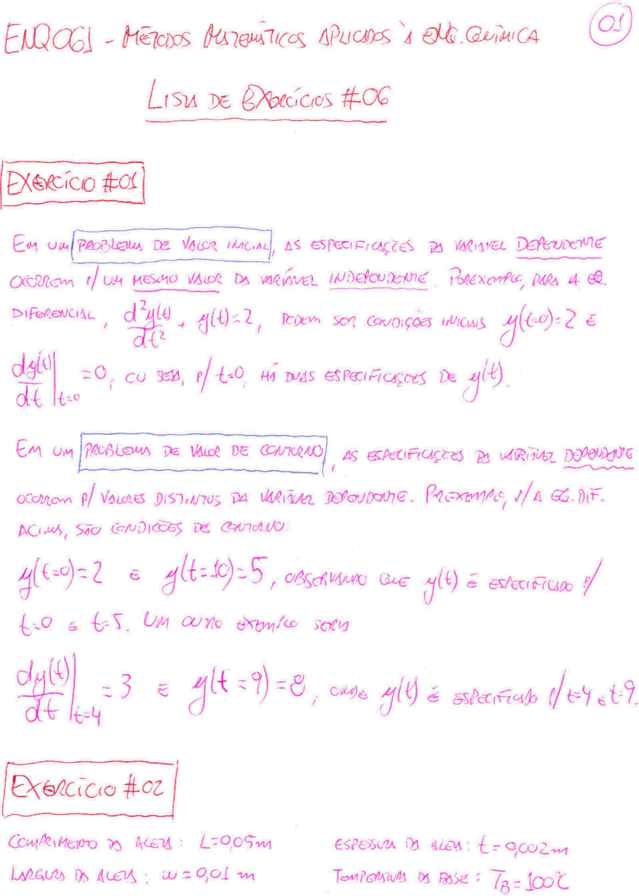 ENQ061 - MÉTODOS MATEMÁTICOS APLICADOS À ENG. QUÍMICA
01
LISTA DE EXERCÍCIOS #06
EXERCÍCIO #01
EM UM PROBLEMA DE VALOR INICIAL, AS ESPECIFICAÇÕES DA VARIÁVEL DEPENDENTE
OCORREM P/ UM MESMO VALOR DA VARIÁVEL INDEPENDENTE. POR EXEMPLO, PARA A EQ.
DIFERENCIAL, d²y(t)/dt² + y(t)=2, PODEM SER CONDIÇÕES INICIAIS y(t=0)=2 E
dy(t)/dt|t=0 =0, OU SEJA, P/ t=0, HÁ DUAS ESPECIFICAÇÕES DE y(t).
EM UM PROBLEMA DE VALOR DE CONTORNO, AS ESPECIFICAÇÕES DA VARIÁVEL DEPENDENTE
OCORREM P/ VALORES DISTINTOS DA VARIÁVEL DEPENDENTE. POR EXEMPLO, P/ A EQ. DIF.
ACIMA, SÃO CONDIÇÕES DE CONTORNO:
y(t=0)=2 E y(t=10)=5, OBSERVANDO QUE y(t) É ESPECIFICADO P/
t=0 E t=5. UM OUTRO EXEMPLO SERIA
dy(t)/dt|t=4 =3 E y(t=9)=8, ONDE y(t) É ESPECIFICADO P/ t=4 E t=9.
EXERCÍCIO #02
COMPRIMENTO DA ALETA: L=0,05m ESPESSURA DA ALETA: t=0,002m
LARGURA DA ALETA: w=0,01 m TEMPERATURA DA BASE: T_B=100°C